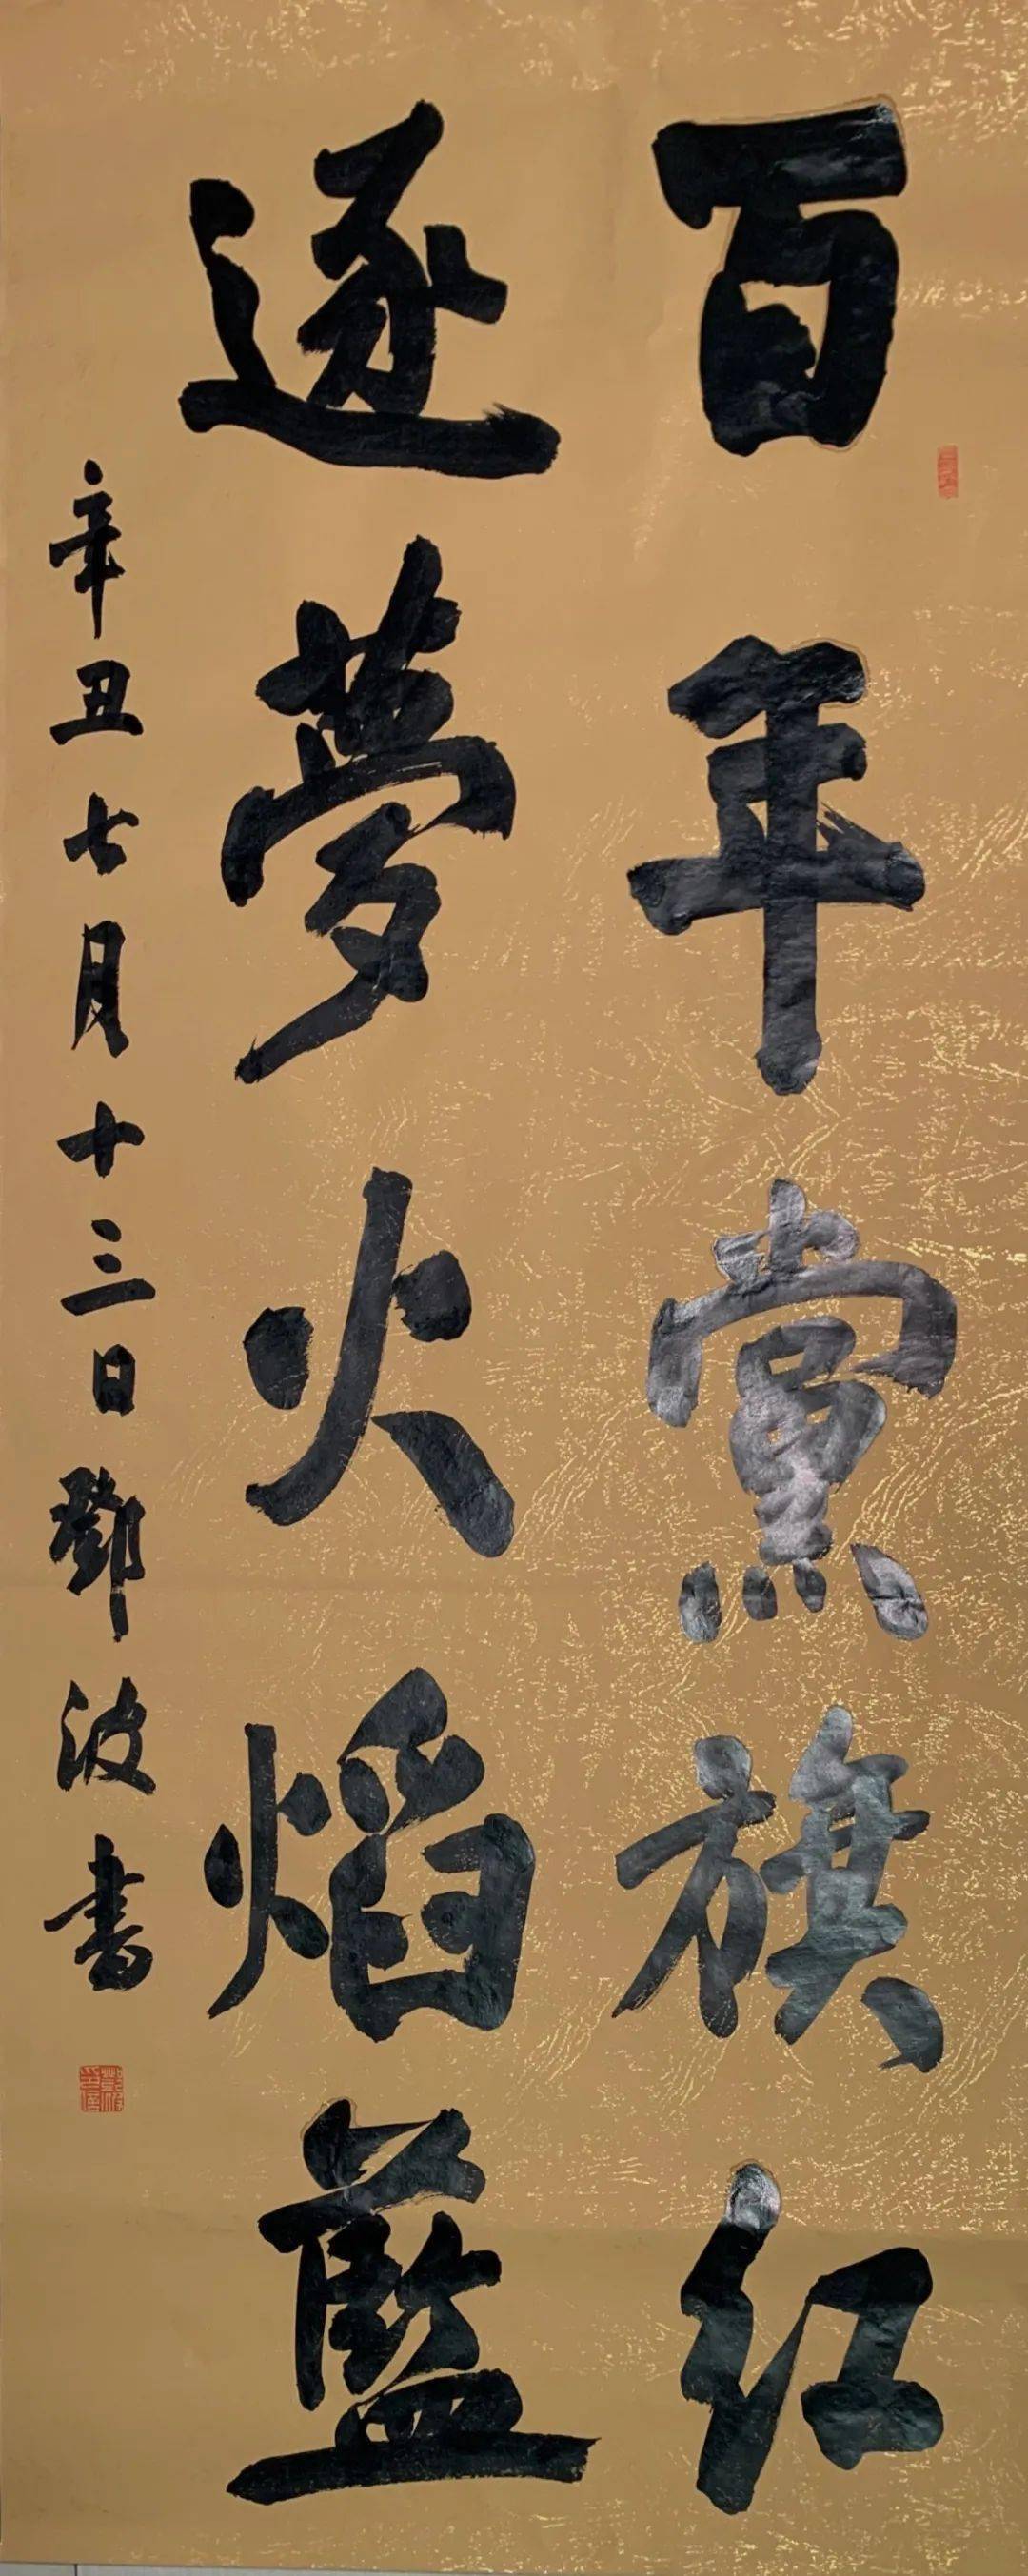 百年黨旗红
逐夢火焰藍
辛丑七月十三日鄧波書